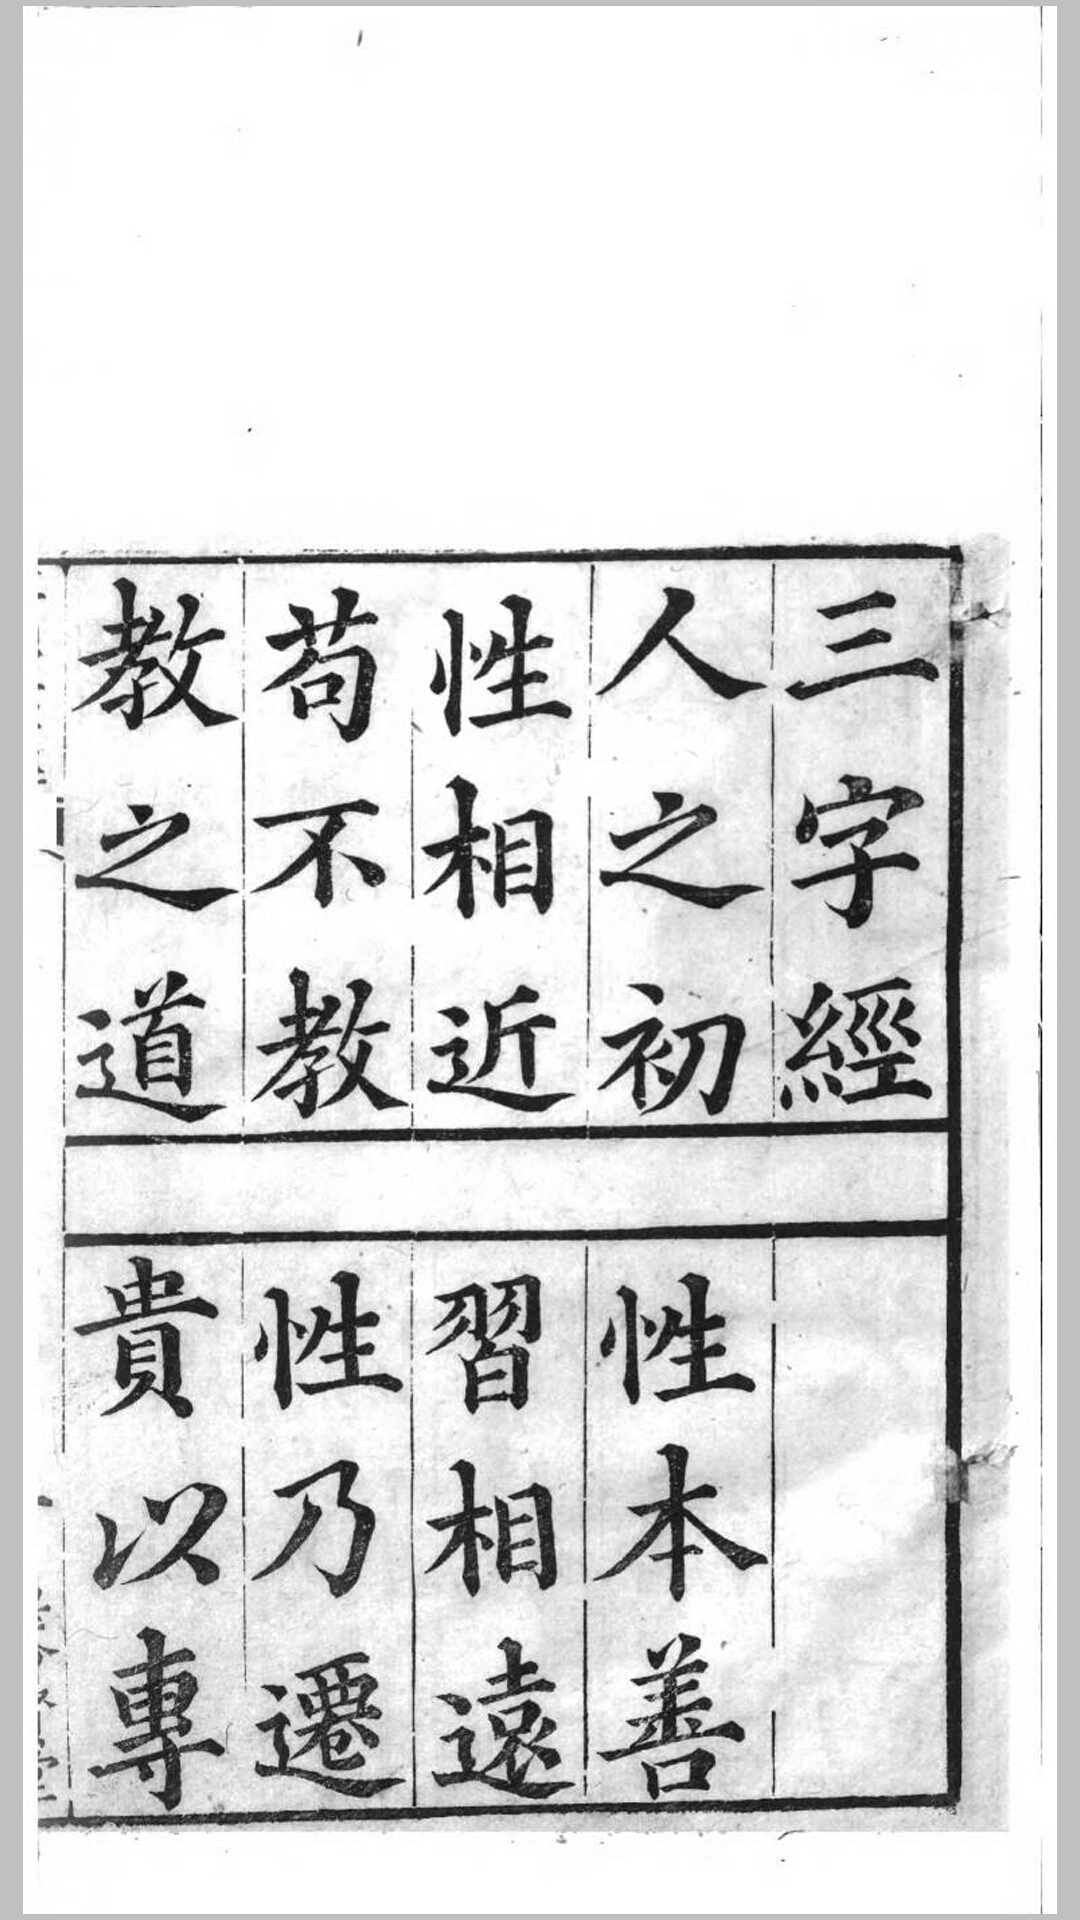 三字經
人之初
性本善
性相近
習相遠
苟不教
性乃遷
教之道
貴以專